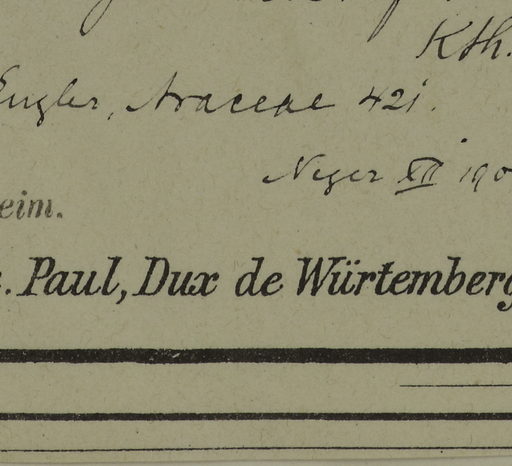 Kth.
Engler, Araceae 421.
Neger XII 190
eim.
. Paul, Dux de Würtemberg